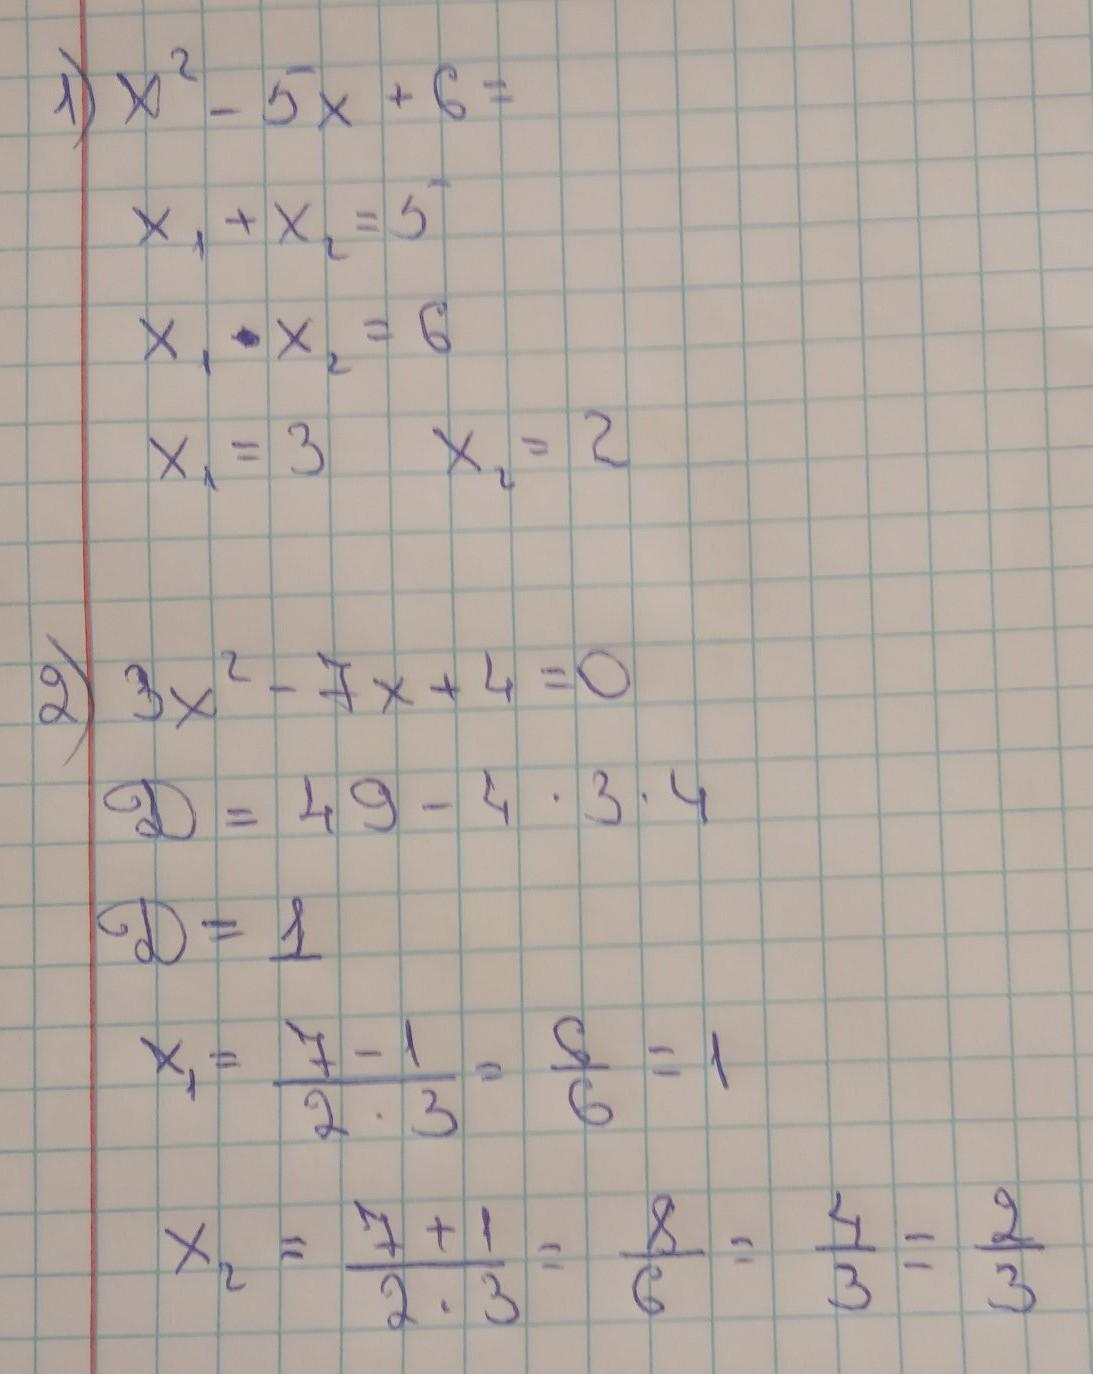 1) x² - 5x + 6 =
x₁ + x₂ = 5
x₁ · x₂ = 6
x₁ = 3 x₂ = 2
2) 3x² - 7x + 4 = 0
D = 49 - 4 · 3 · 4
D = 1
x₁ = (7 - 1)/(2 · 3) = 6/6 = 1
x₂ = (7 + 1)/(2 · 3) = 8/6 = 4/3 = 2/3